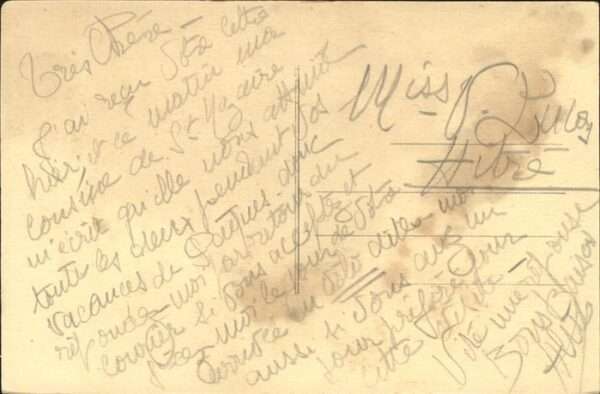 Très Chère -
J'ai reçu votre lettre
hier, et ce matin ma
cousine de St Nazaire
m'écrit qu'elle nous attend
toute les deux pendant vos
vacances de Pâques donc
répondez-moi par retour du
courrier si vous acceptez et
dites-moi le jour de votre
arrivée en ville dites-moi
aussi si vous avez un
jour préféré pour
cette
Vite une réponse
Bons Baisers
Miss P.